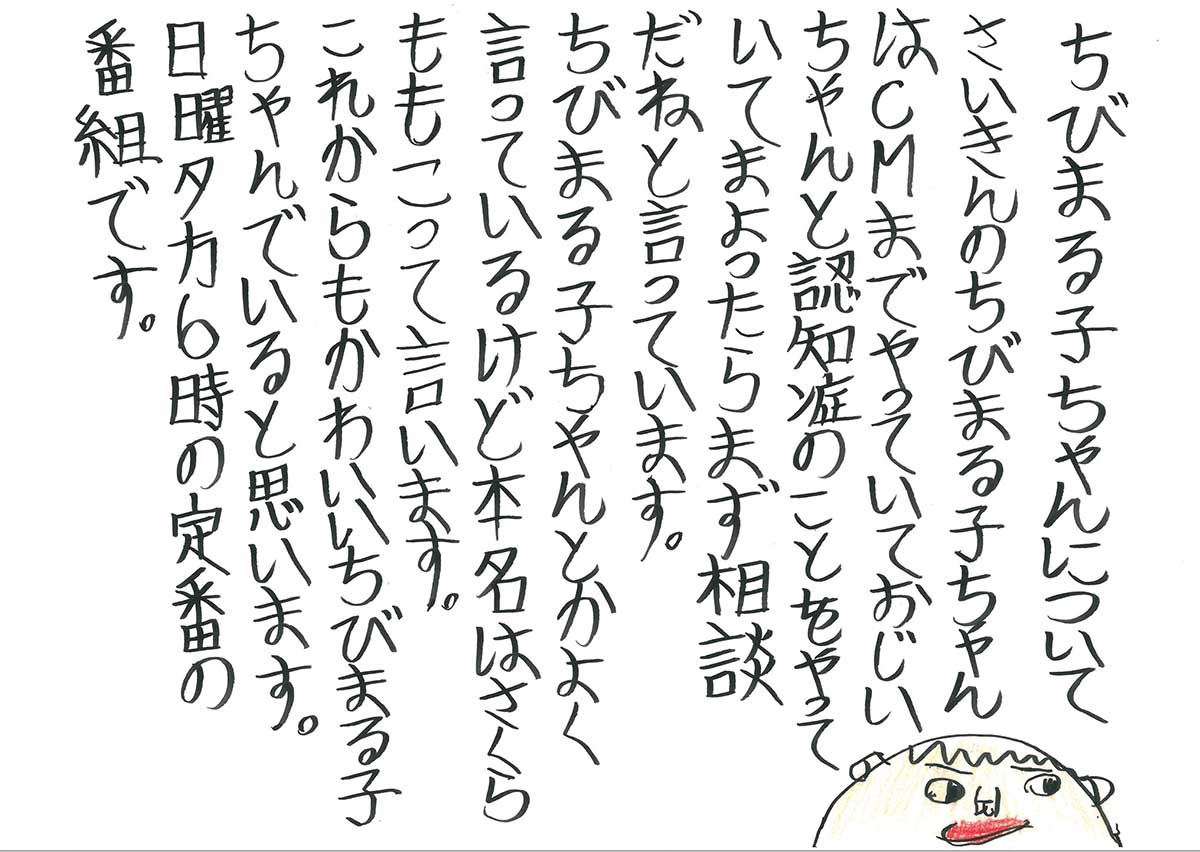 ちびまる子ちゃんについて
さいきんのちびまる子ちゃん
はCMまでやっていておじい
ちゃんと認知症のことをやって
いてまよったらまず相談
だねと言っています。
ちびまる子ちゃんとかよく
言っているけど本名はさくら
ももこって言います。
これからもかわいいちびまる子
ちゃんでいると思います。
日曜夕方6時の定番の
番組です。